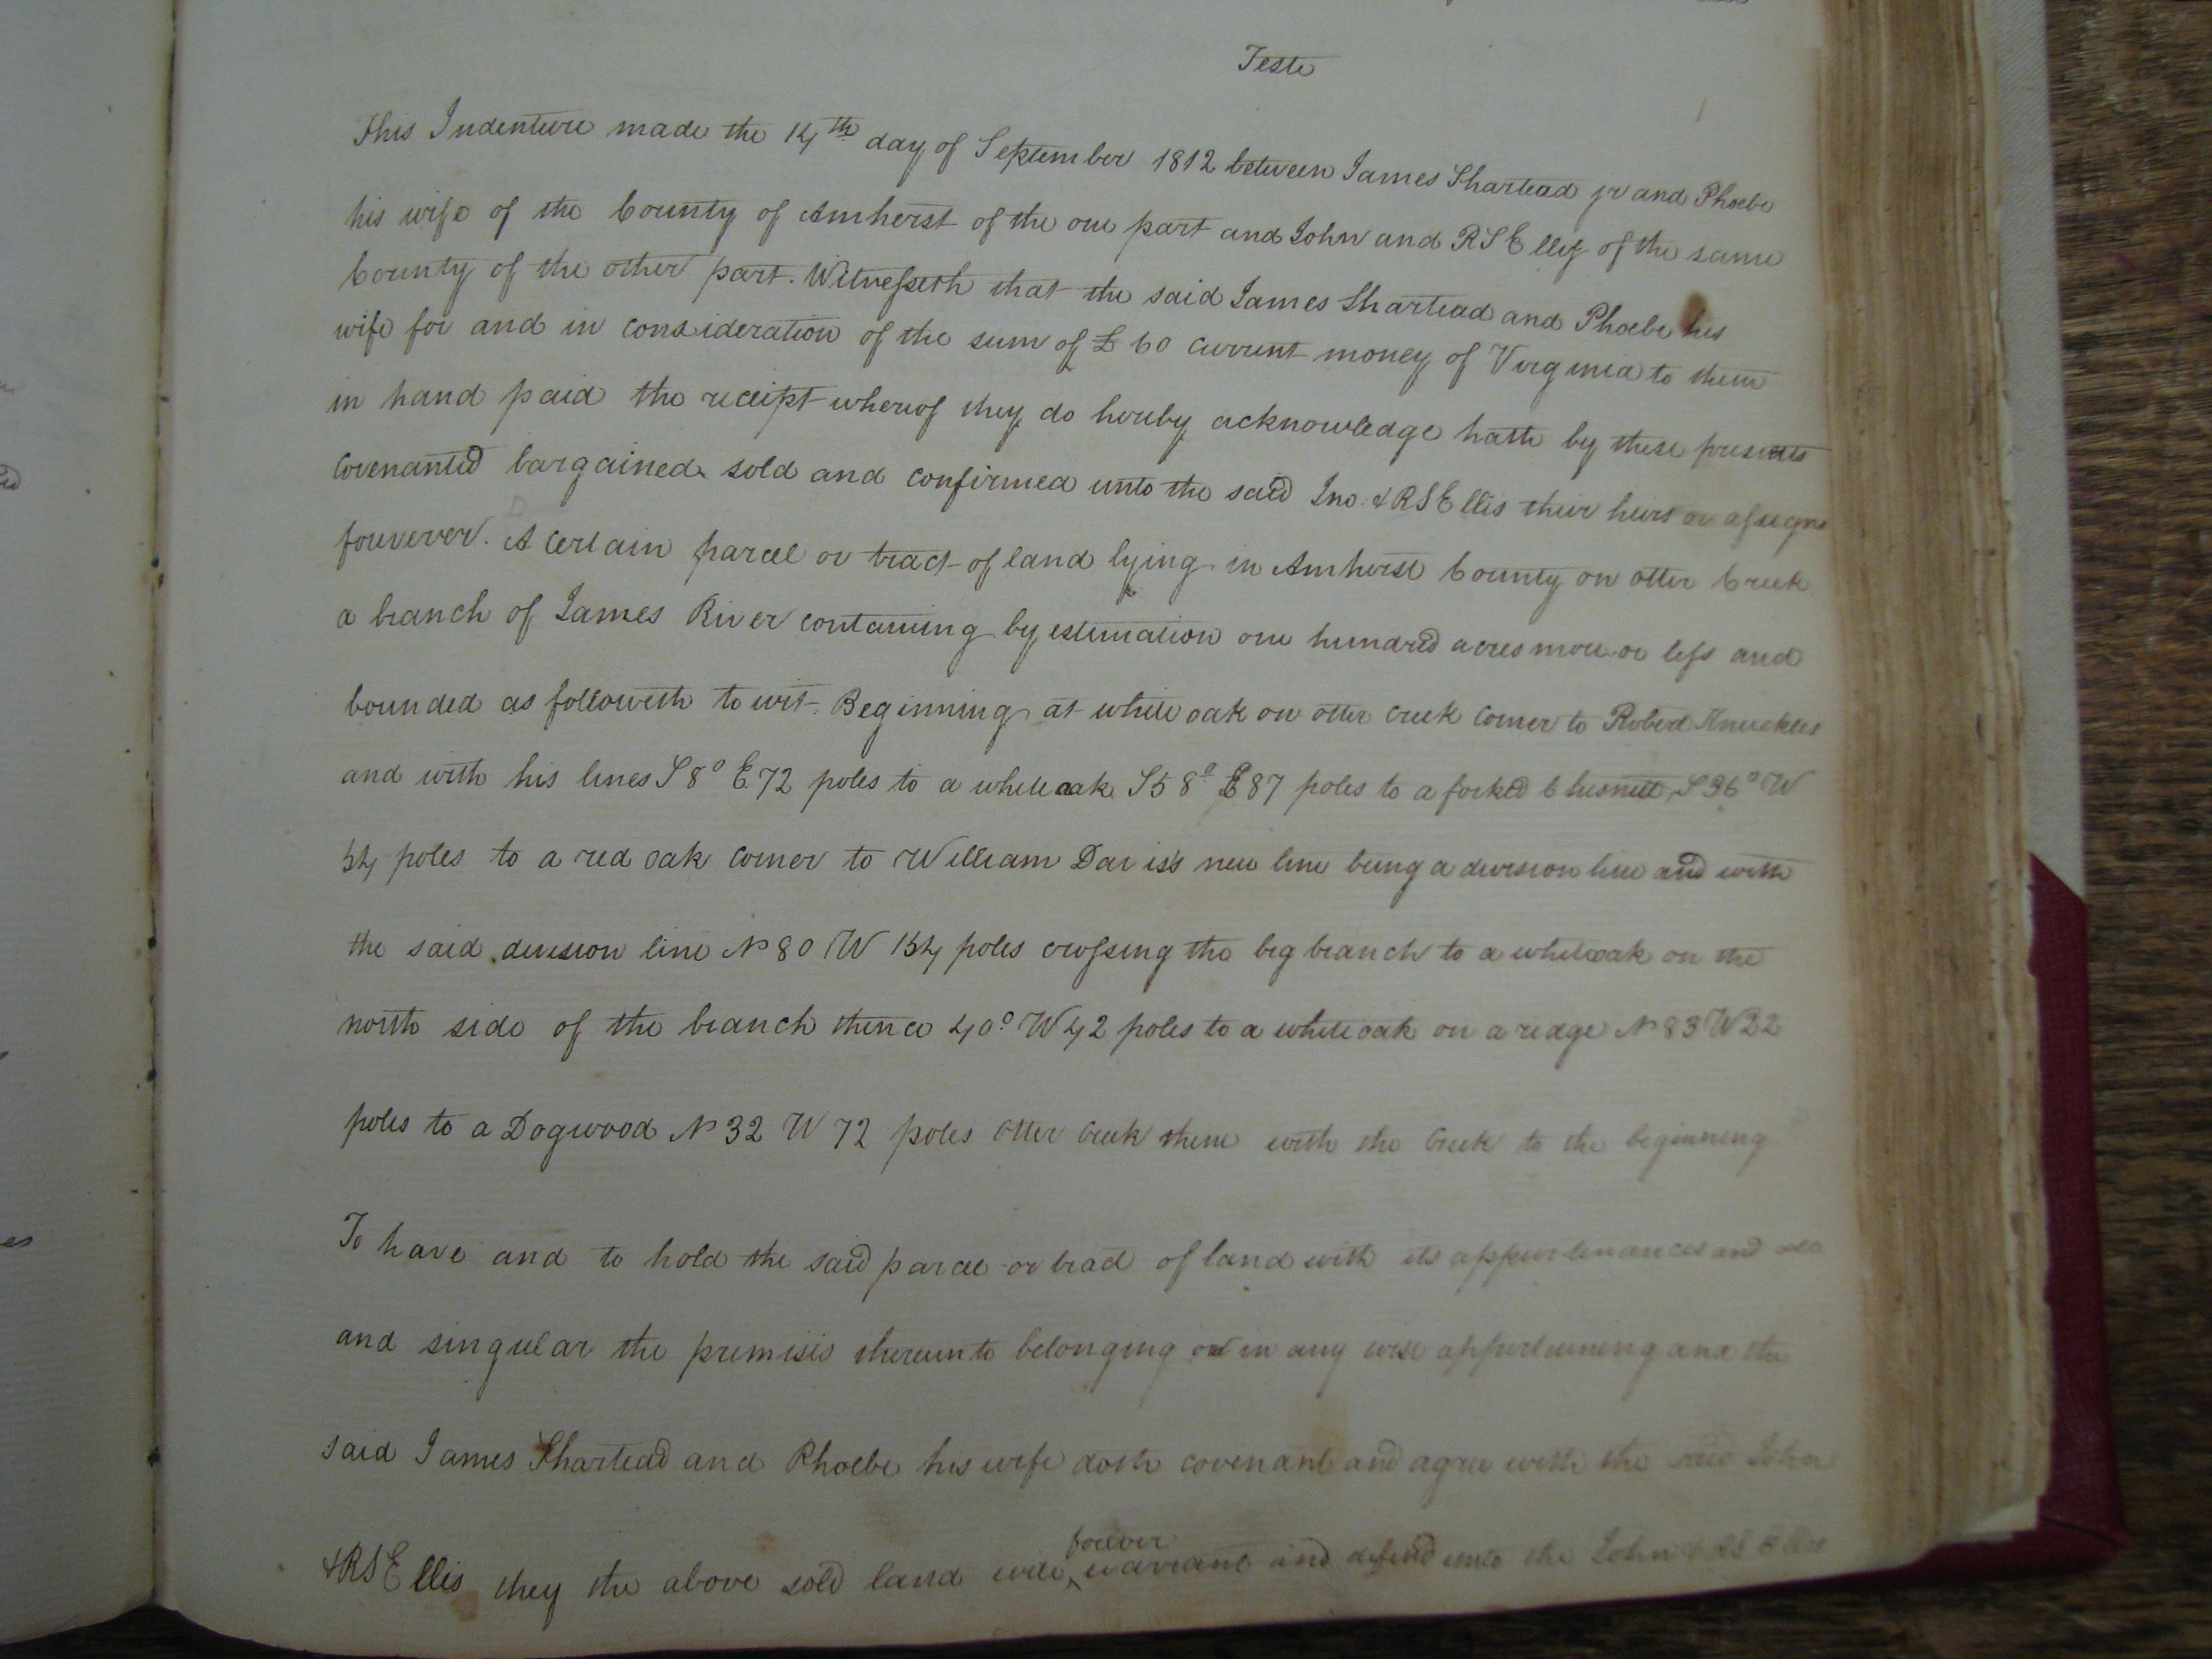 Teste
This Indenture made the 14th day of September 1812 between James Shartead jr and Phoebe
his wife of the County of Amherst of the one part and John and RS Elley of the same
County of the other part. Witnesseth that the said James Shartead and Phoebe his
wife for and in consideration of the sum of £ 60 current money of Virginia to them
in hand paid the receipt whereof they do hereby acknowledge hath by these presents
covenanted bargained sold and confirmed unto the said Jno. & RS Ellis their heirs or assigns
forever. A certain parcel or tract of land lying in Amherst County on otter Creek
a branch of James River containing by estimation one hundred acres more or less and
bounded as followeth to wit. Beginning at white oak on otter creek corner to Robert Knuckles
and with his lines S 8° E 72 poles to a white oak S 58° E 87 poles to a forked Chesnut, S 36° W
54 poles to a red oak corner to William Davis's new line being a division line and with
the said division line N 80 W 154 poles crossing the big branch to a white oak on the
north side of the branch thence 40° W 42 poles to a white oak on a ridge N 83 W 22
poles to a Dogwood N 32 W 72 poles Otter Creek thence with the Creek to the beginning
To have and to hold the said parcel or tract of land with its appurtenances and all
and singular the premises thereunto belonging or in any wise appertaining and the
said James Shartead and Phoebe his wife doth covenant and agree with the said John
& RS Ellis they the above sold land will forever warrant and defend unto the John & RS Ellis